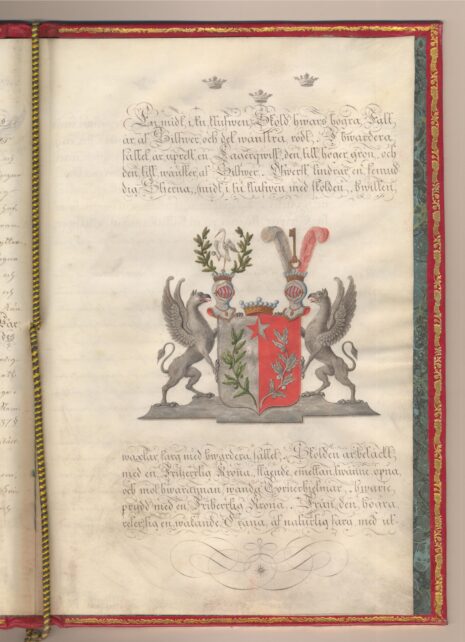 En midt i tu klufwen Sköld hwars högra Fält
är af Silfwer och det wänstra rödt. I hwardera
fältet är uprest en Lagerqwist, den till höger grön, och
den till wänster af Silfwer. Öfwerst tindrar en femud
dig Stierna, midt i tu klufwen med skölden, hwilken,
wäxlar färg med hwardera fältet. Skölden är betäckt
med en Friherrlig Krona, stående emellan twänne öpna,
och mot hwarannan wända Torneerhjelmar, hwardera
prydd med en Friherrlig Krona. Från den högra
reser sig en wakande Trana af naturlig färg med ut